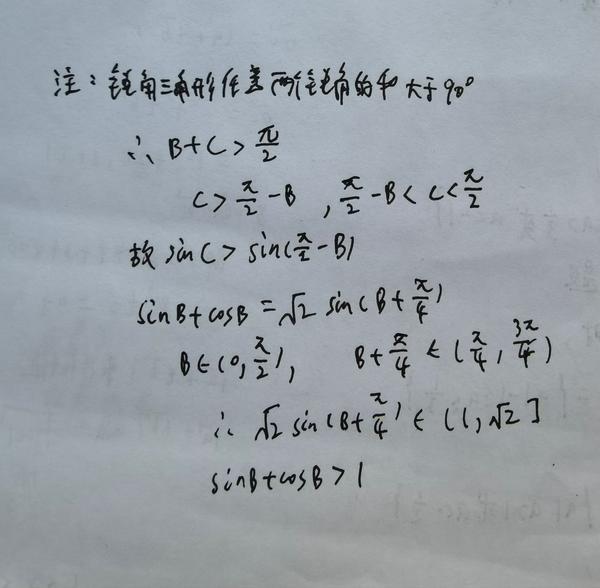 注：锐角三角形任意两个锐角的和大于90°
∴ B+C>π/2
C>π/2-B ，π/2-B<C<π/2
故 sinC>sin(π/2-B)
sinB+cosB=√2 sin(B+π/4)
B∈(0,π/2)， B+π/4∈(π/4,3π/4)
∴ √2 sin(B+π/4)∈(1,√2]
sinB+cosB>1